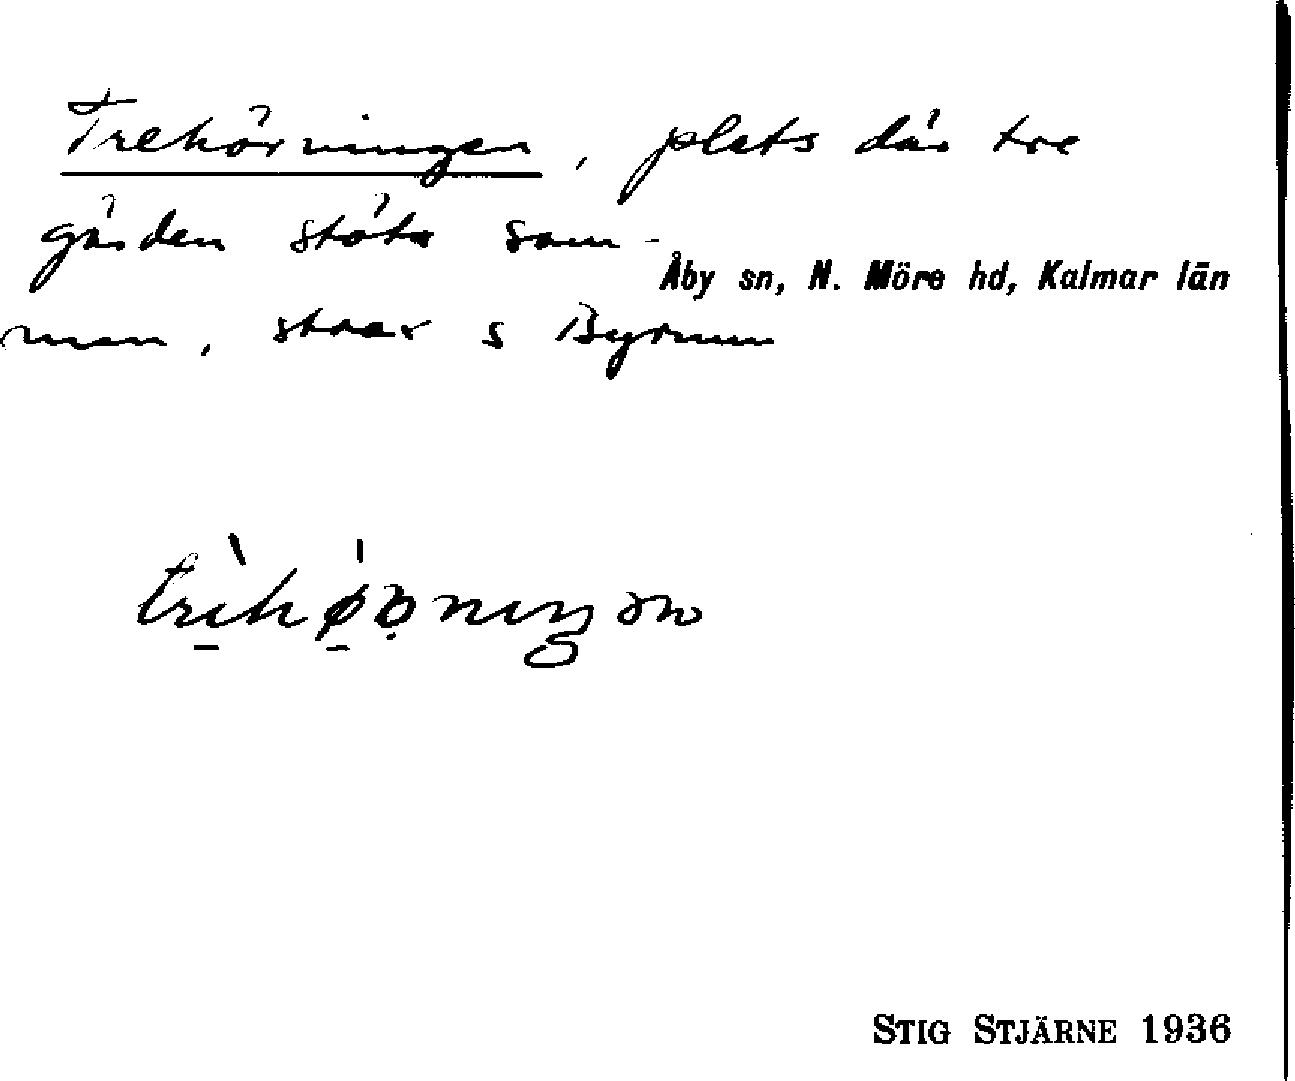 Trehörningen, plats där tre
gärden stöta sam-
Åby sn, N. Möre hd, Kalmar län
man, strax s Byrum
STIG STJÄRNE 1936